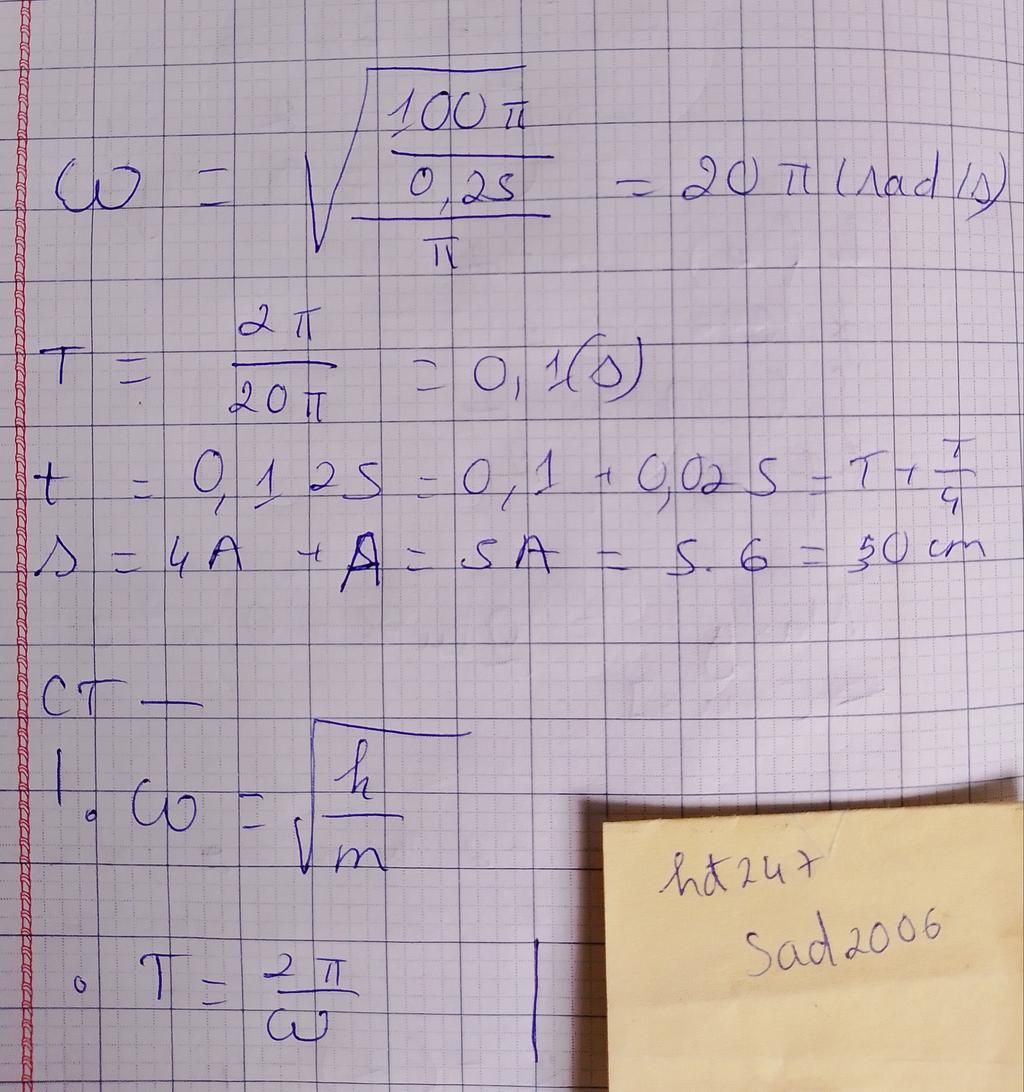 ω = √((100π / 0,25) / π) = 20π (rad/s)
T = 2π / 20π = 0,1(s)
t = 0,125 = 0,1 + 0,025 = T + T/4
s = 4A + A = 5A = 5.6 = 30 cm
CT —
1. ω = √(k/m)
• T = 2π / ω |
hdt247
Sad2006